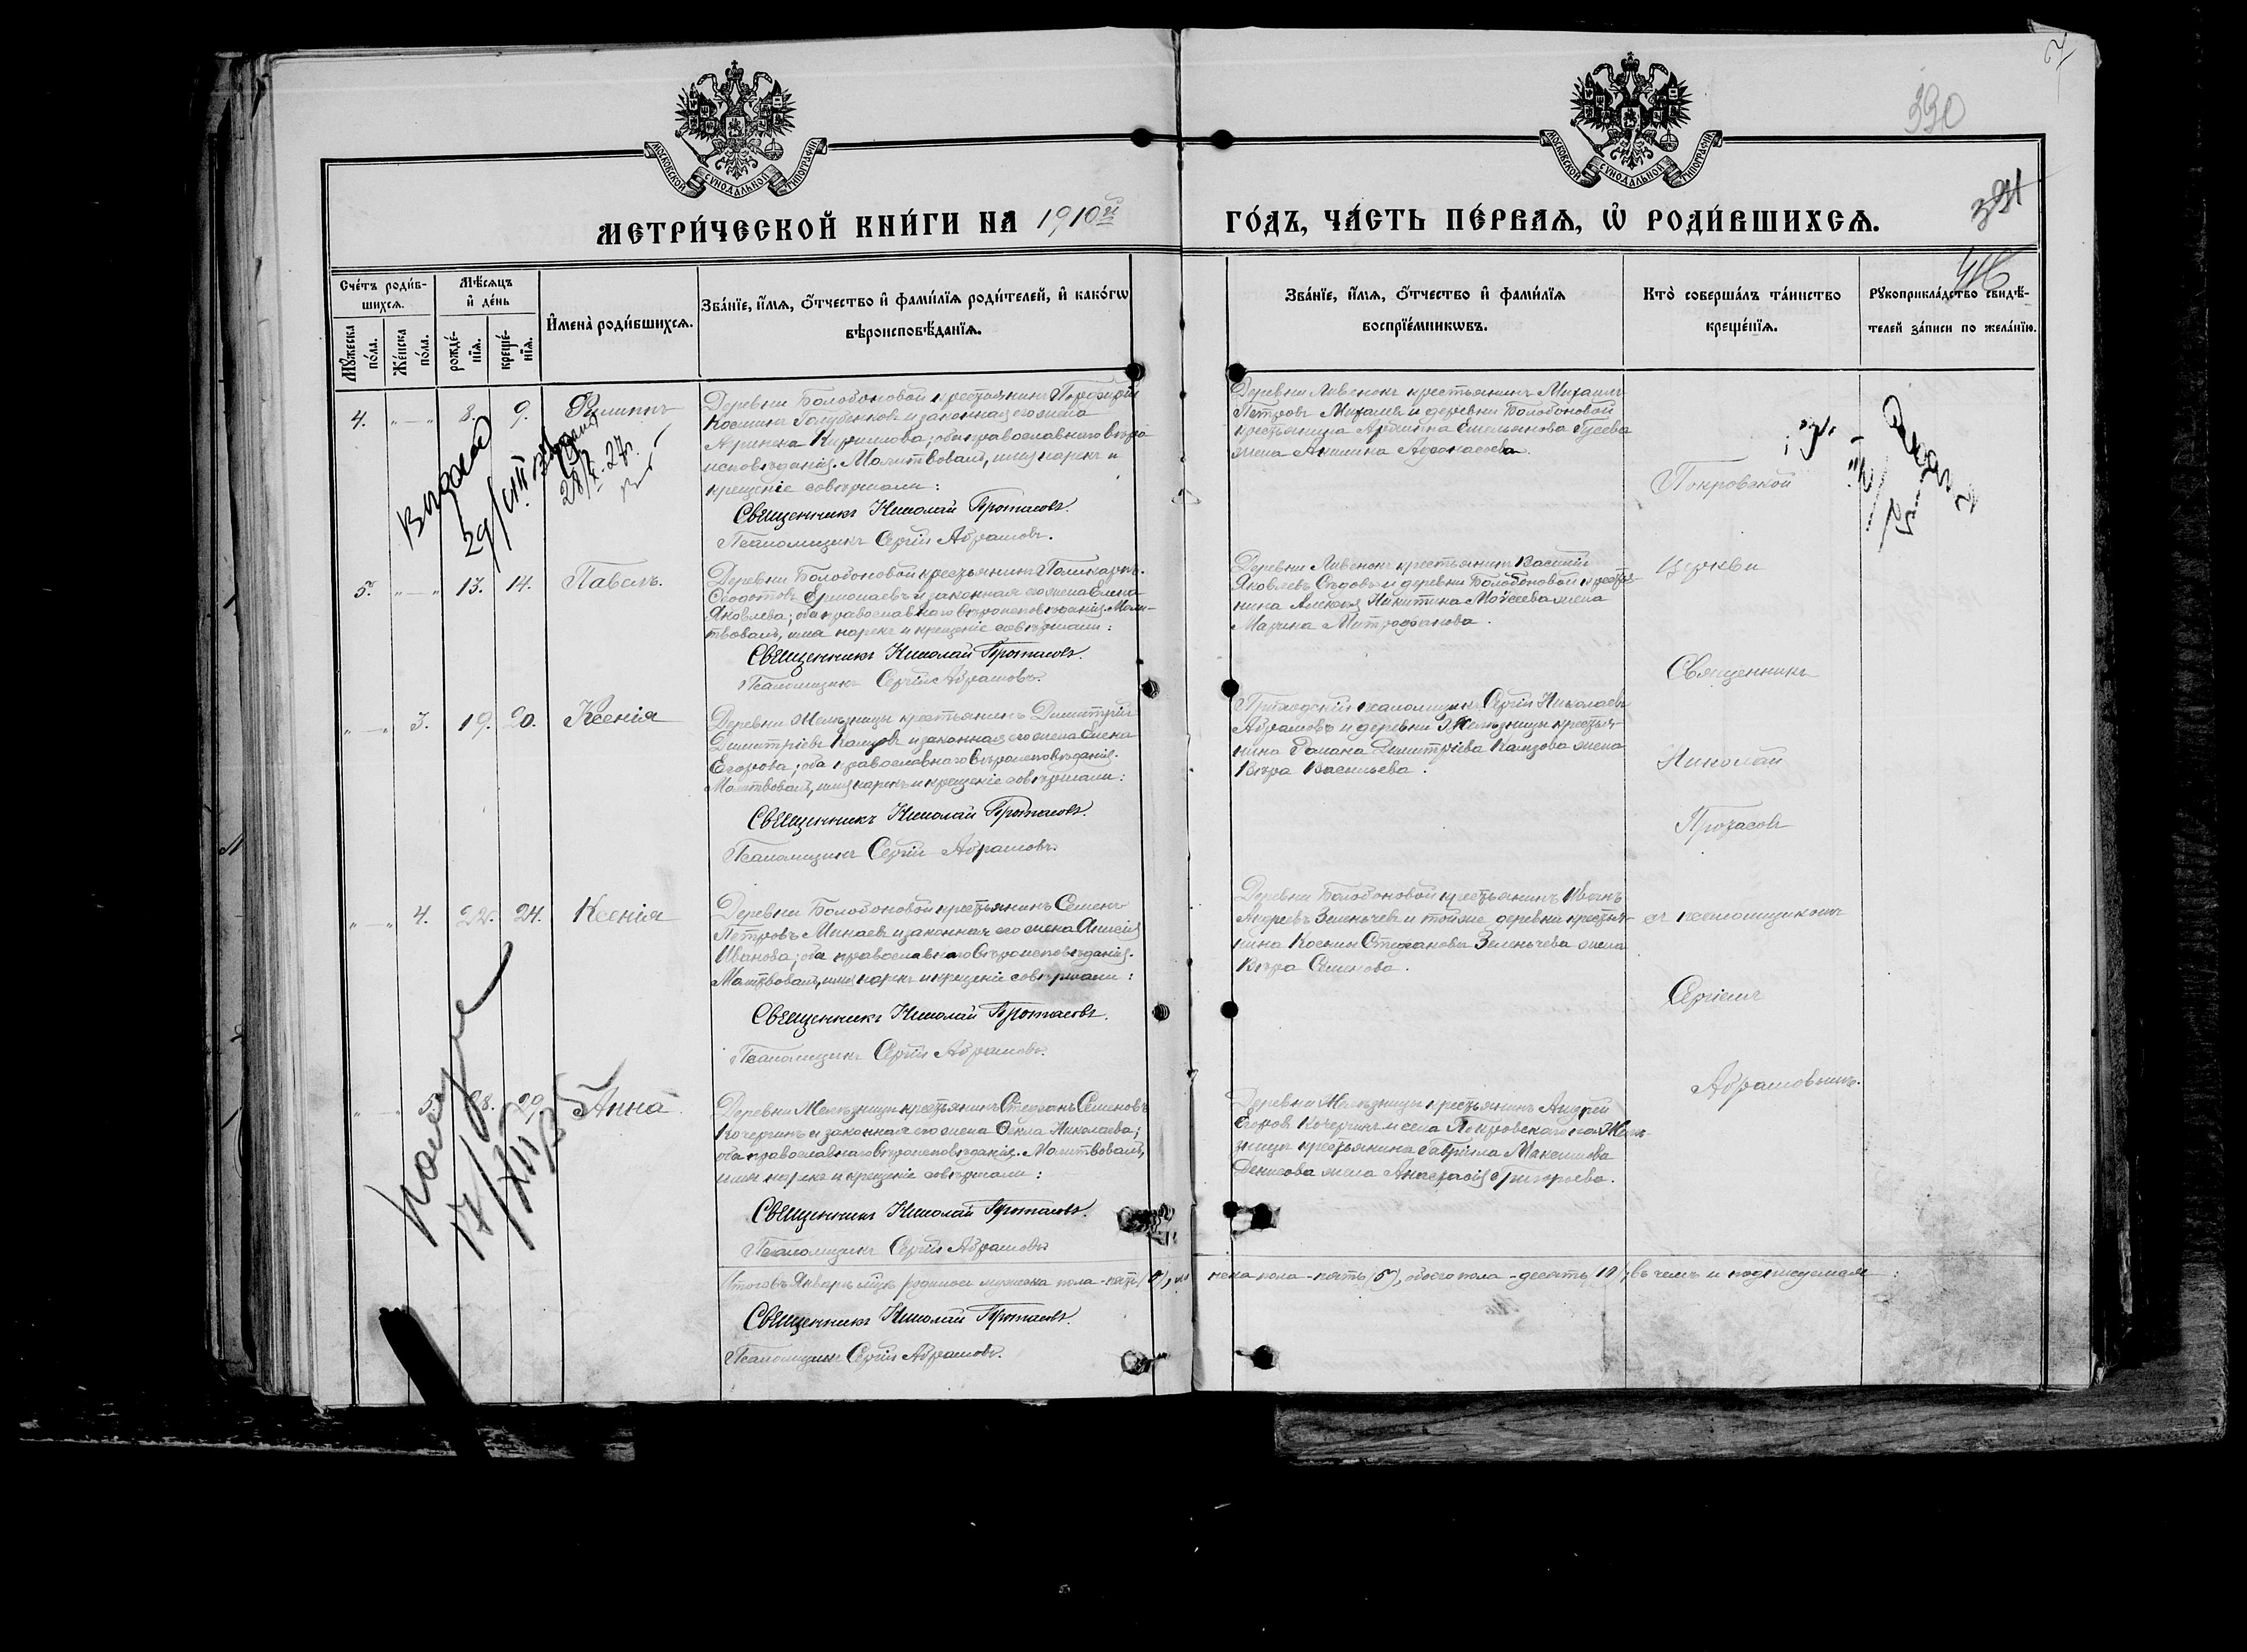 7
390
391
416
МОСКОВСКОЙ СѴНОДАЛЬНОЙ ТИПОГРАФІИ
МОСКОВСКОЙ СѴНОДАЛЬНОЙ ТИПОГРАФІИ
МЕТРИ́ЧЕСКОЙ КНИ́ГИ НА 1910й ГО́ДЪ, ЧА́СТЬ ПЕ́РВАѦ, Ѡ РОДИ́ВШИХСѦ.
Сче́тъ роди́в-
шихсѧ.
Мꙋ́жеска по́ла.
Же́нска по́ла.
Мѣ́сѧцъ и҆ де́нь
рожде́-нїѧ.
креще́-нїѧ.
И҆мена̀ роди́вшихсѧ.
Зва́нїе, и҆́мѧ, ѻ҆́тчество и҆ фами́лїѧ роди́телей, и҆ како́гѡ
вѣроисповѣ́данїѧ.
Зва́нїе, и҆́мѧ, ѻ҆́тчество и҆ фами́лїѧ
воспрїе́мникѡвъ.
Кто̀ соверша́лъ та́инство
креще́нїѧ.
Рꙋкоприкла́дство свидѣ́-
телей за́писи по жела́нїю.
4. 8. 9. Филиппъ
Деревни Болобоновой крестьянинъ Порфирій
Косминъ Голубковъ и законная его жена
Ирина; оба православнаго вѣро-
исповѣданія. Молитвовалъ, имя нарекъ и
крещеніе совершали:
Священникъ Николай Протасовъ.
Псаломщикъ Сергій Абрамовъ.
Деревни Ливенокъ крестьянинъ Михаилъ
Петровъ и деревни Болобоновой
крестьянина Емельянова Гусева
жена Акилина Афанасьева.
5. 13. 14. Павелъ.
Деревни Болобоновой крестьянинъ Поликарпъ
Ѳедотовъ Ермолаевъ и законная его жена Елена
Яковлева; оба православнаго вѣроисповѣданія. Моли-
твовалъ, имя нарекъ и крещеніе совершали:
Священникъ Николай Протасовъ.
Псаломщикъ Сергій Абрамовъ.
Деревни Ливенокъ крестьянинъ Василій
Яковлевъ Сѣдовъ и деревни Болобоновой крестья-
нина Алексѣя Никитина Моѵсеева жена
Марина Митрофанова.
3. 19. 20. Ксенія
Деревни Желѣзницы крестьянинъ Димитрій
Димитріевъ Камзовъ и законная его жена Елена
Егорова; оба православнаго вѣроисповѣданія.
Молитвовалъ, имя нарекъ и крещеніе совершали:
Священникъ Николай Протасовъ.
Псаломщикъ Сергій Абрамовъ.
псаломщикъ Сергій Николаевъ
Абрамовъ и деревни Желѣзницы крестья-
нина Романа Димитріева Камзова жена
Вѣра Васильева.
4. 22. 24. Ксенія
Деревни Болобоновой крестьянинъ Семенъ
Петровъ Минаевъ и законная его жена Анисія
Иванова; оба православнаго вѣроисповѣданія.
Молитвовалъ, имя нарекъ и крещеніе совершали:
Священникъ Николай Протасовъ.
Псаломщикъ Сергій Абрамовъ.
Деревни Болобоновой крестьянинъ Иванъ
Андреевъ Зеленычевъ и тойже деревни крестья-
нина Космы Стефанова Зеленычева жена
Вѣра Семенова.
5. 28. 29. Анна
Деревни Желѣзницы крестьянинъ Стефанъ Семеновъ
Кочергинъ и законная его жена Ѳекла Николаева;
оба православнаго вѣроисповѣданія. Молитвовалъ,
имя нарекъ и крещеніе совершали:
Священникъ Николай Протасовъ.
Псаломщикъ Сергій Абрамовъ
Деревни Желѣзницы крестьянинъ Андрей
Егоровъ Кочергинъ и села Покровскаго на Желѣз-
ницѣ крестьянина Гавріила Максимова
Денисова жена Анастасія Григорьева.
Покровской
церкви
Священникъ
Николай
Протасовъ
съ псаломщикомъ
Сергіемъ
Абрамовымъ.
Итого въ Январѣ мцѣ родилось мужеска пола - пять (5), женска пола - пять (5), обоего пола - десять (10), въ чемъ и подписуемся:
Священникъ Николай Протасовъ.
Псаломщикъ Сергій Абрамовъ.